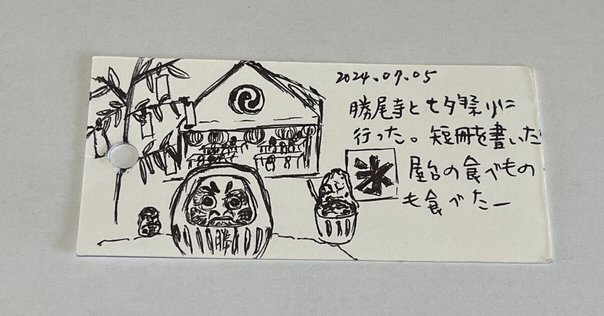 2024.07.05
勝尾寺と七夕祭りに
行った。短冊を書いた
屋台の食べもの
も食べたー
氷
勝